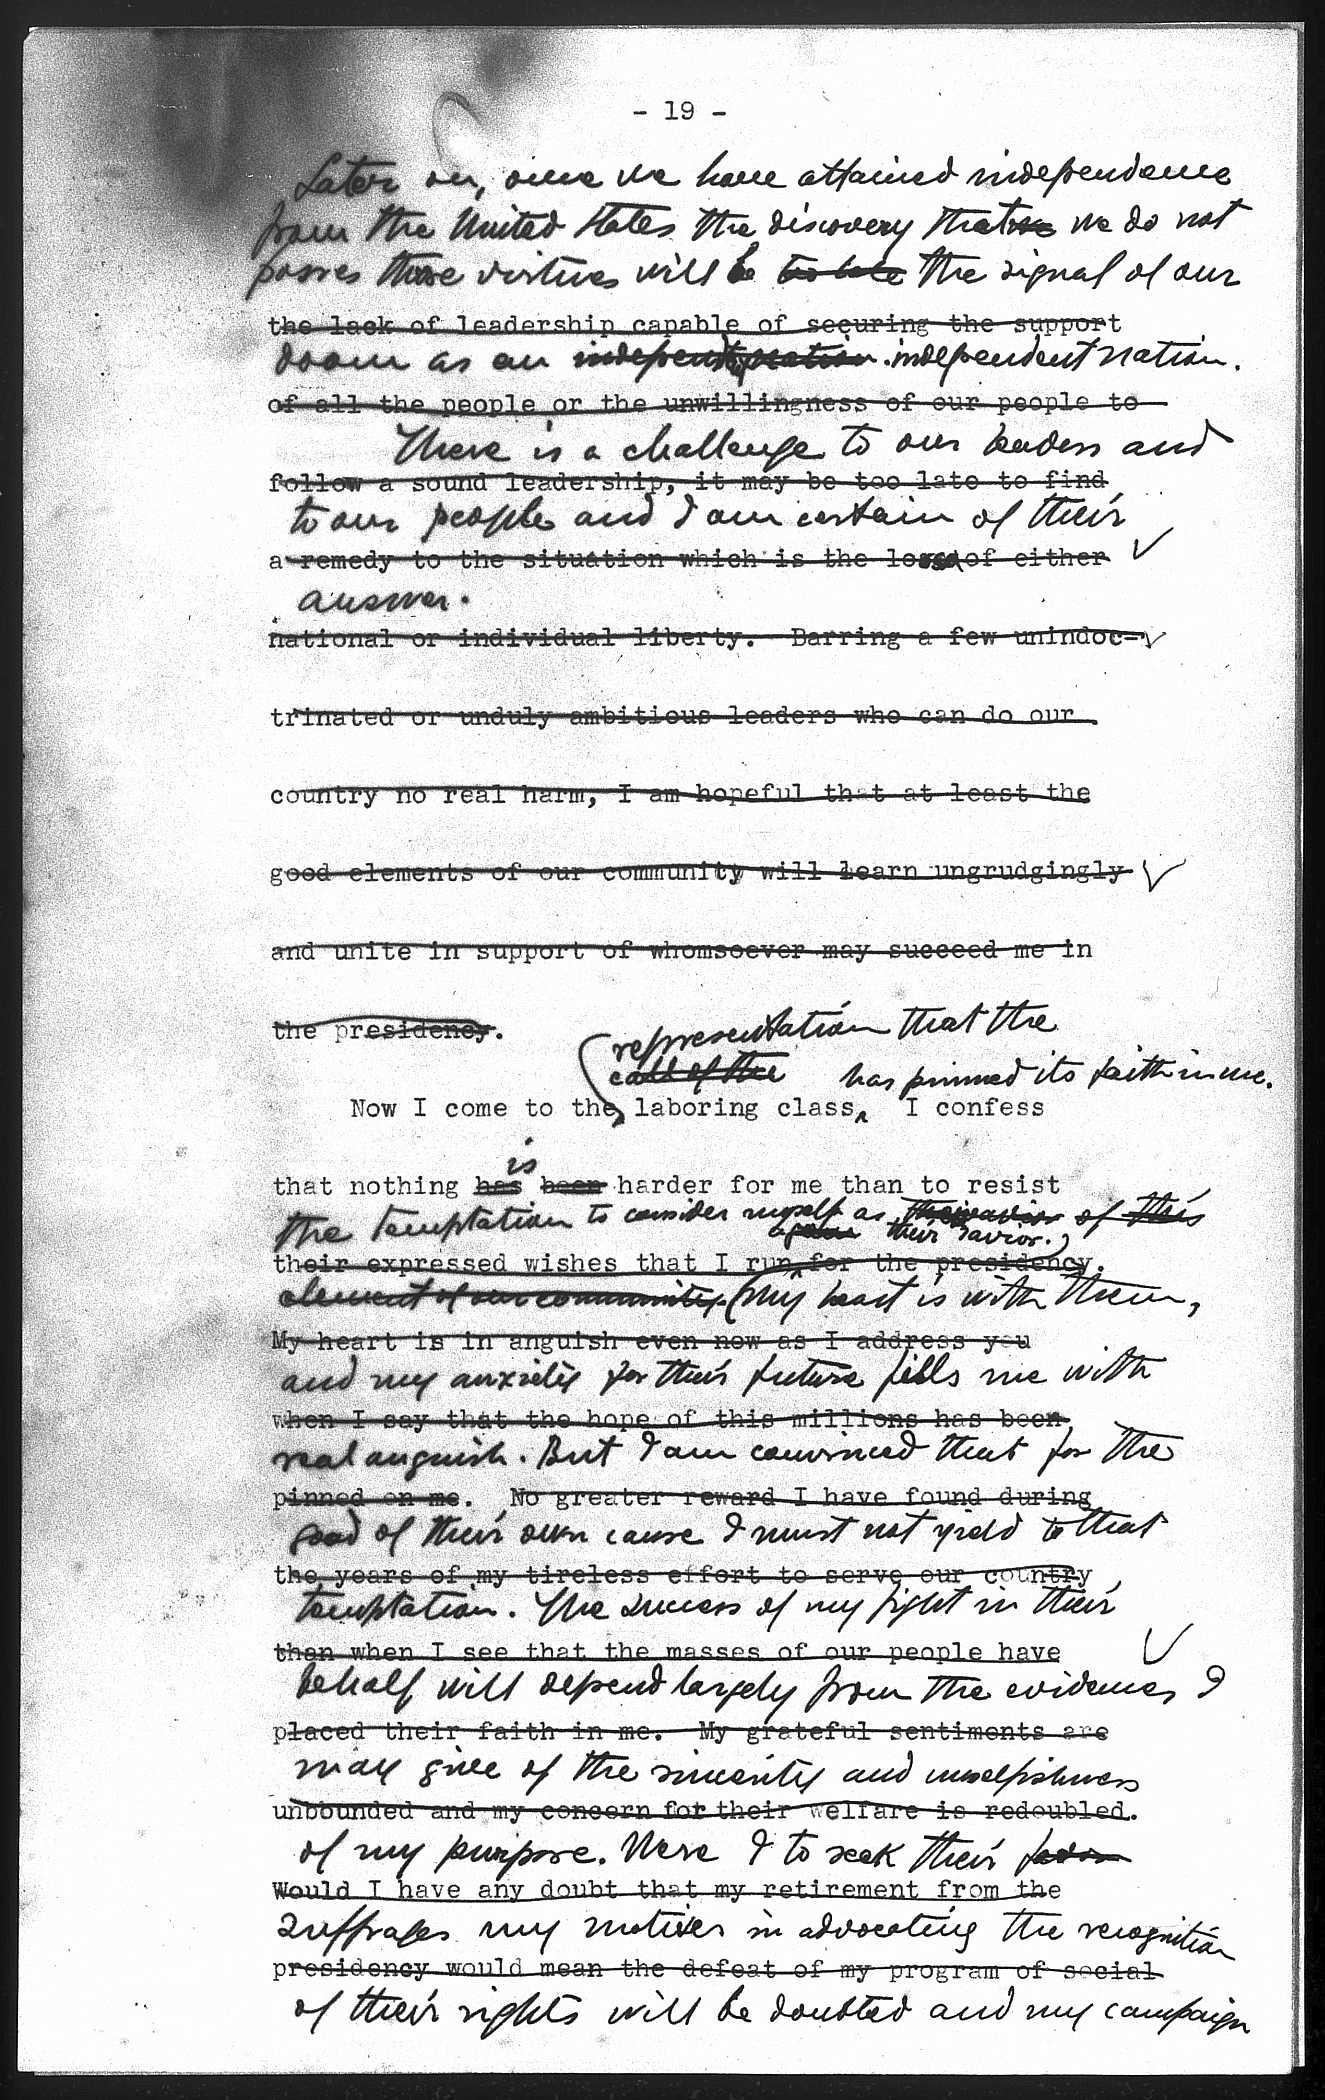 - 19 -
Later on, once we have attained independence
from the United States the discovery that we do not
posses those virtues will be too late the signal of our
the lack of leadership capable of securing the support
doom as an independent nation. independent nation.
of all the people or the unwillingness of our people to
There is a challenge to our leaders and
follow a sound leadership, it may be too late to find
to our people and I am certain of their
a remedy to the situation which is the loss of either
answer.
national or individual liberty. Barring a few unindoc-
trinated or unduly ambitious leaders who can do our
country no real harm, I am hopeful that at least the
good elements of our community will learn ungrudgingly
and unite in support of whomsoever may succeed me in
the presidency.
representation that the
call of the has pinned its faith in me.
Now I come to the laboring class I confess
is
that nothing has been harder for me than to resist
the temptation to consider myself as their savior of this
again their savior.
their expressed wishes that I run for the presidency.
element of our community. My heart is with them,
My heart is in anguish even now as I address you
and my anxiety for their future fills me with
when I say that the hope of this millions has been
real anguish. But I am convinced that for the
pinned on me. No greater reward I have found during
good of their own cause I must not yield to that
the years of my tireless effort to serve our country
temptation. The success of my fight in their
than when I see that the masses of our people have
behalf will depend largely from the evidences I
placed their faith in me. My grateful sentiments are
may give of the sincerity and unselfishness
unbounded and my concern for their welfare is redoubled.
of my purpose. Were I to seek their favor
Would I have any doubt that my retirement from the
suffrages my motives in advocating the recognition
presidency would mean the defeat of my program of social
of their rights will be doubted and my campaign